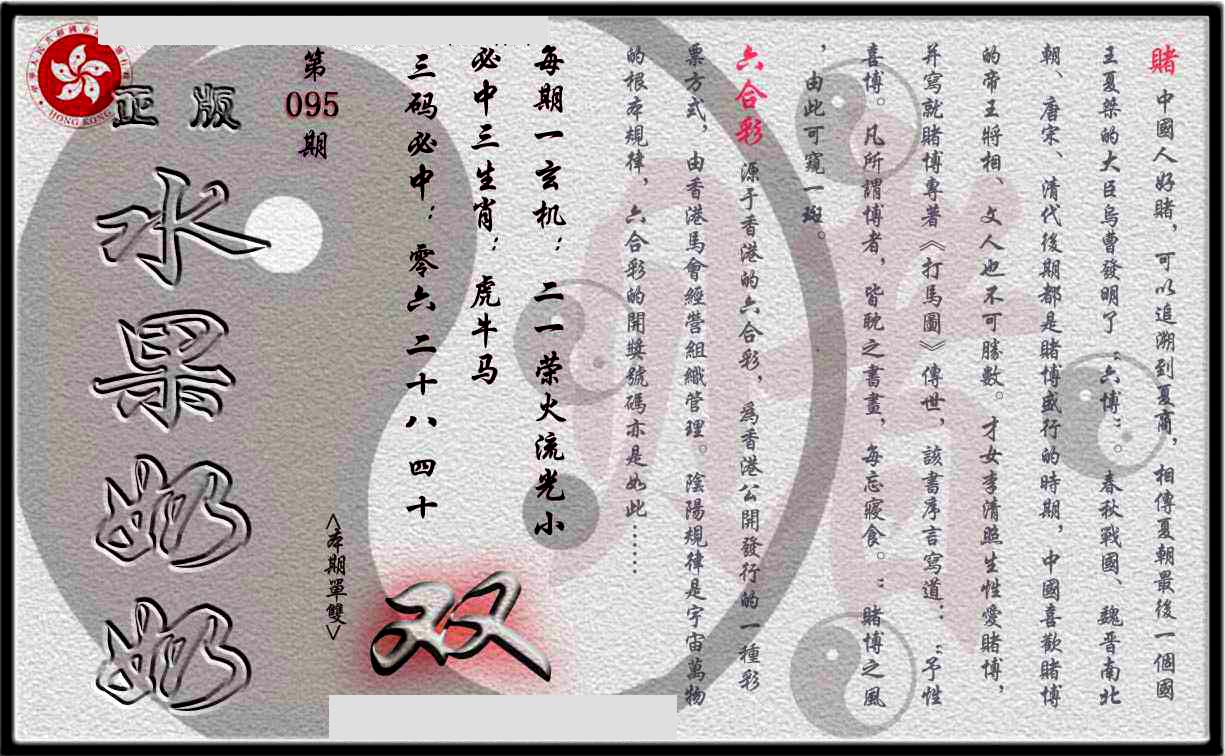 賭 中國人好賭，可以追溯到夏商，相傳夏朝最後一個國
王夏桀的大臣烏曹發明了“六博”。春秋戰國、魏晉南北
朝、唐宋、清代後期都是賭博盛行的時期，中國喜歡賭博
的帝王將相、文人也不可勝數。才女李清照生性愛賭博，
并寫就賭博專著《打馬圖》傳世，該書序言寫道：“予性
喜博。凡所謂博者，皆耽之書畫，每忘寢食。”賭博之風
，由此可窺一斑。
六合彩 源于香港的六合彩，為香港公開發行的一種彩
票方式，由香港馬會經營組織管理。陰陽規律是宇宙萬物
的根本規律，六合彩的開獎號碼亦是如此……
每期一玄机：二一荣火流光小
必中三生肖：虎牛马
三码必中：零六二十八四十
第
095
期
<本期單雙>
双
正版
水果奶奶
HONG KONG